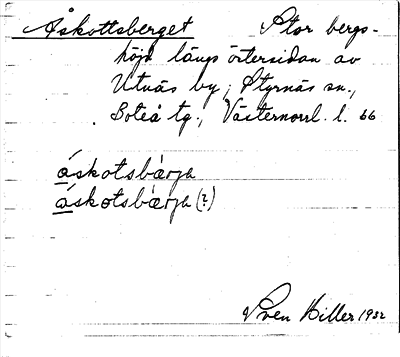 Åskottsberget Stor bergs-
höjd längs östersidan av
Utnäs by, Styrnäs sn.,
Boteå tg., Västernorrl. l. 66
áskotsbærja
áskotsbærja (?)
Sven Hiller 1932